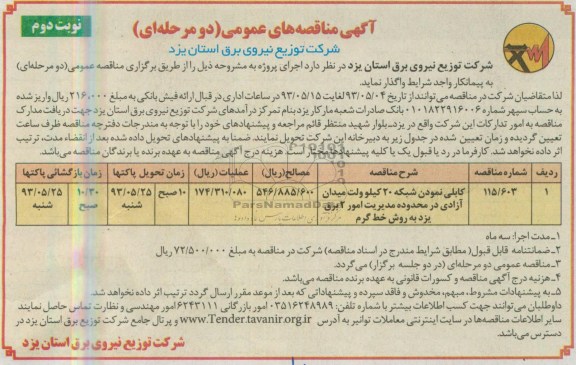 نوبت دوم
آگهی مناقصه‌های عمومی(دو مرحله‌ای)
شرکت توزیع نیروی برق استان یزد
شرکت توزیع نیروی برق استان یزد در نظر دارد اجرای پروژه به مشروحه ذیل را از طریق برگزاری مناقصه عمومی(دو مرحله‌ای)
به پیمانکار واجد شرایط واگذار نماید.
لذا متقاضیان شرکت در مناقصه می‌توانند از تاریخ ۹۳/۰۵/۰۴ لغایت ۹۳/۰۵/۱۵ در ساعات اداری در قبال ارائه فیش بانکی به مبلغ ۲۱۶،۰۰۰ ریال واریز شده
به حساب سپهر شماره ۰۱۰۱۸۲۲۹۱۶۰۰۶ بانک صادرات شعبه مارکار یزد بنام تمرکز درآمدهای شرکت توزیع نیروی برق استان یزد جهت دریافت مدارک
مناقصه به امور تدارکات این شرکت واقع در یزد-بلوار شهید منتظر قائم مراجعه و پیشنهادهای خود را با توجه به مندرجات دفترچه مناقصه ظرف ساعت
تعیین گردیده و زمان تعیین شده در جدول زیر به دبیرخانه این شرکت تحویل نمایند. ضمنا به پیشنهادهای تحویل داده شده بعد از انقضاء مدت، ترتیب
اثر داده نخواهد شد. کارفرما در رد یا قبول یک یا کلیه پیشنهادها مختار است. هزینه درج آگهی مناقصه به عهده برنده یا برندگان مناقصه می‌باشد.
ردیف شماره مناقصه شرح مناقصه مصالح(ریال) عملیات(ریال) زمان تحویل پاکتها زمان بازگشائی پاکتها
۱ ۱۱۵/۶۰۳ کابلی نمودن شبکه ۲۰ کیلو ولت میدان آزادی در محدوده مدیریت امور ۲ برق یزد به روش خط گرم ۵۴۶/۸۸۵/۶۰۰ ۱۷۴/۳۱۰/۰۸۰ ۱۰ صبح ۹۳/۰۵/۲۵ شنبه ۱۰/۳۰ صبح ۹۳/۰۵/۲۵ شنبه
ParsNamadData
۱-مدت اجرا: سه ماه
۲-ضمانتنامه قابل قبول( مطابق شرایط مندرج در اسناد مناقصه) شرکت در مناقصه به مبلغ ۷۲/۵۰۰/۰۰۰ ریال
۳-مناقصه عمومی دو مرحله‌ای (در دو جلسه برگزار) می‌گردد.
۴-هزینه درج آگهی مناقصه و کسورات قانونی به عهده برنده مناقصه می‌باشد.
۵-به پیشنهادات مشروط، مبهم، مخدوش و فاقد سپرده و پیشنهاداتی که بعد از موعد مقرر ارسال گردد ترتیب اثر داده نخواهد شد.
داوطلبان می‌توانند جهت کسب اطلاعات بیشتر با شماره تلفن: ۰۳۵۱۶۲۴۸۹۸۹ امور بازرگانی ۶۲۴۳۱۱۱ امور مهندسی و نظارت تماس حاصل نمایند
سایر اطلاعات مناقصه‌ها در سایت اینترنتی معاملات توانیر به آدرس www.Tender.tavanir.org.ir و پرتال جامع شرکت توزیع برق استان یزد در
دسترس می‌باشد.
شرکت توزیع نیروی برق استان یزد